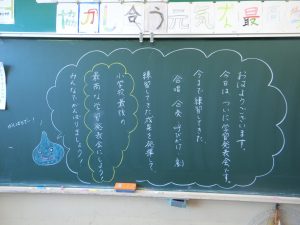 協力し合う元気な最
おはようございます。
今日は、ついに学習発表会です。
今まで練習してきた、
合唱 合奏 呼びかけ 劇
練習してきた成果を発揮して、
小学校最後の
最高な学習発表会にしよう！
みんなでがんばりましょう！
がんばろー！